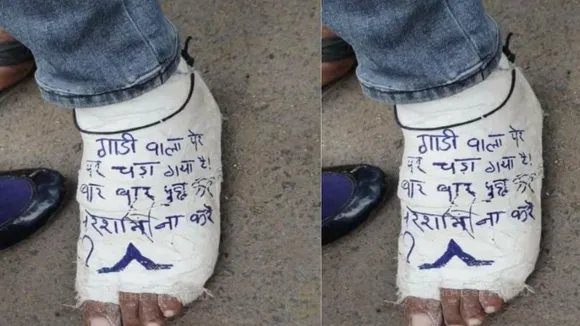 गाडी वाला पेर
पर चडा गया है!
बार बार पुछ कर
ना करे
गाडी वाला पेर
पर चडा गया है!
बार बार पुछ कर
ना करे